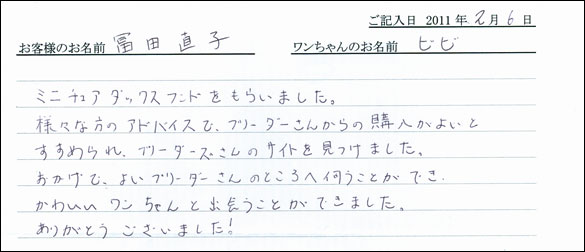 ご記入日 2011年2月6日
お客様のお名前 冨田直子 ワンちゃんのお名前 ビビ
ミニチュアダックスフンドをもらいました。
様々な方のアドバイスで、ブリーダーさんからの購入がよいと
すすめられ、ブリーダーズさんのサイトを見つけました。
おかげで、よいブリーダーさんのところへ伺うことができ、
かわいいワンちゃんと出会うことができました。
ありがとうございました!